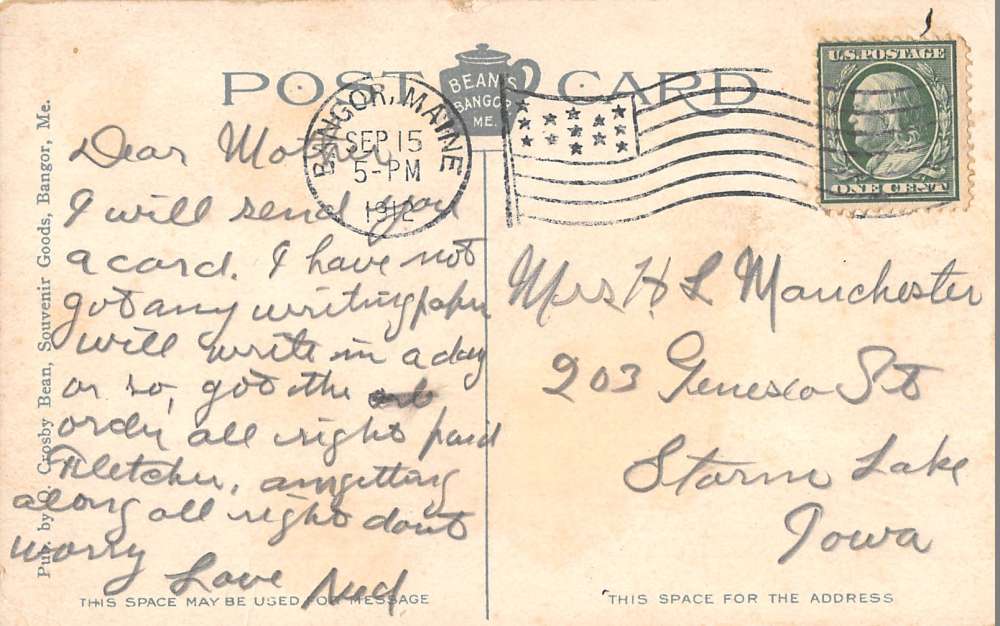 POST CARD
BEAN'S
BANGOR
ME.
BANGOR, MAINE
SEP 15
5-PM
1912
U.S. POSTAGE
ONE CENT
Pub. by O. Crosby Bean, Souvenir Goods, Bangor, Me.
Dear Mother
I will send you
a card. I have not
got any writing paper
will write in a day
or so, got the
order all right paid
Fletcher, am getting
along all right dont
worry
Love Ned
Mrs H L Manchester
203 Geneseo St
Storm Lake
Iowa
THIS SPACE MAY BE USED FOR MESSAGE
THIS SPACE FOR THE ADDRESS